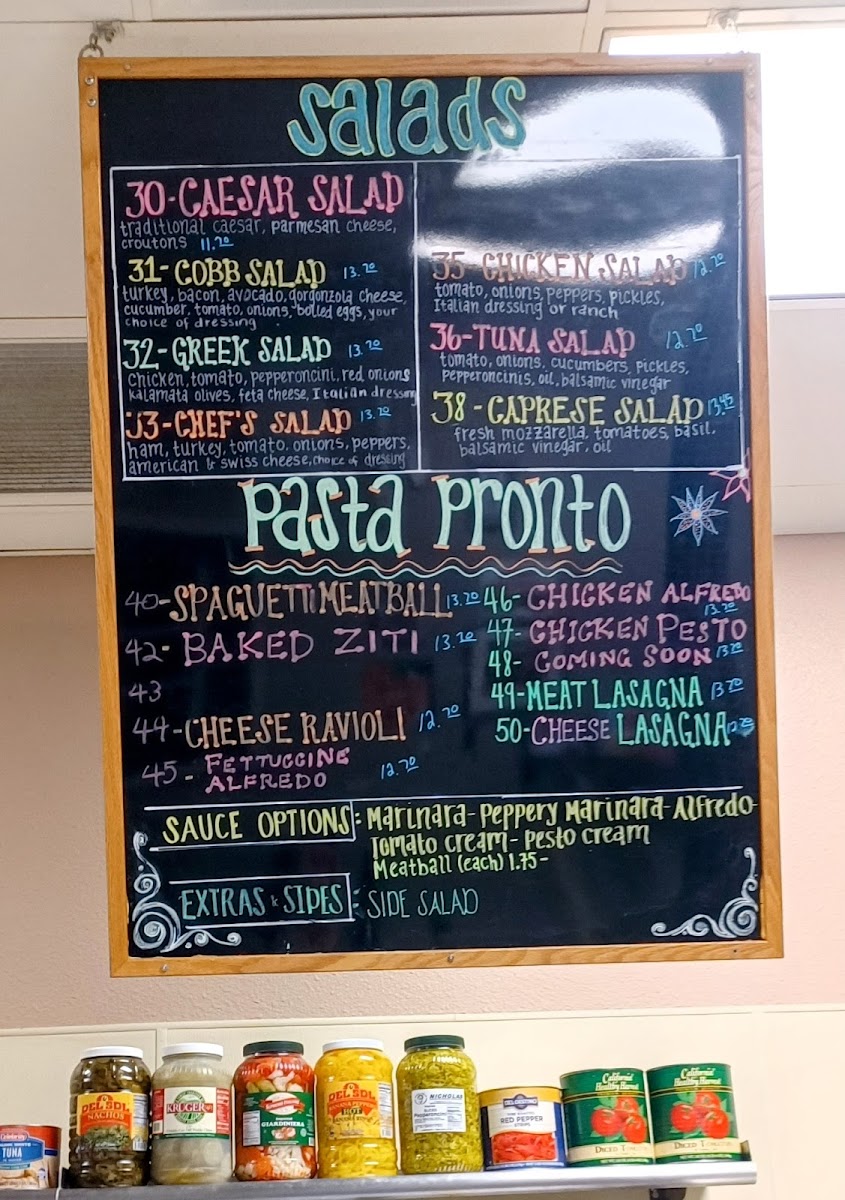 Salads
30-CAESAR SALAD
traditional caesar, parmesan cheese,
croutons 11.20
31-COBB SALAD 13.20
turkey, bacon, avocado, gorgonzola cheese,
cucumber, tomato, onions, boiled eggs, your
choice of dressing
32-GREEK SALAD 13.20
chicken, tomato, pepperoncini, red onions
kalamata olives, feta cheese, Italian dressing
33-CHEF'S SALAD 13.20
ham, turkey, tomato, onions, peppers,
american & swiss cheese, choice of dressing
35-CHICKEN SALAD 12.20
tomato, onions, peppers, pickles,
Italian dressing or ranch
36-TUNA SALAD 12.20
tomato, onions, cucumbers, pickles,
Pepperoncinis, oil, balsamic vinegar
38-CAPRESE SALAD 13.45
fresh mozzarella, tomatoes, basil,
balsamic vinegar, oil
Pasta Pronto
40-SPAGUETTI MEATBALL 13.20
42-BAKED ZITI 13.20
43
44-CHEESE RAVIOLI 12.70
45-FETTUCCINE
ALFREDO 12.70
46-CHICKEN ALFREDO
13.20
47-CHICKEN PESTO
48-COMING SOON 13.20
49-MEAT LASAGNA 13.20
50-CHEESE LASAGNA
SAUCE OPTIONS: Marinara-Peppery Marinara-Alfredo
Tomato cream-Pesto cream
Meatball (each) 1.75-
EXTRAS & SIDES: SIDE SALAD
Celebrity
TUNA
DEL SOL
NACHOS
KRUGER
GIARDINIERA
DEL SOL
HOT
NICHOLAS
RED PEPPER
STRIPS
California
Healthy Harvest
DICED TOMATOES
California
Healthy Harvest
DICED TOMATOES